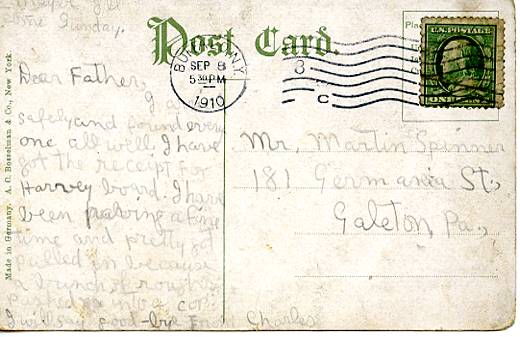 one Sunday.
Post Card.
BUFFALO, N.Y.
SEP 8
5 30 PM
1910
3
C
U.S. POSTAGE
ONE CENT
Dear Father,
safely and found every
one all well. I have
got the receipt for
Harvey board. I have
been having a fine
time and pretty
pulled in because
a bunch of
pushed a into a cop.
I will say good-bye From Charles
Mr. Martin Spinner
181 Germania St.,
Galeton, Pa.,
Made in Germany. A. C. Bosselman & Co., New York.